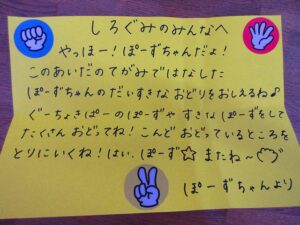 しろぐみのみんなへ
やっほー！ぽーずちゃんだよ！
このあいだのてがみではなした
ぽーずちゃんのだいすきな おどりをおしえるね♪
ぐーちょきぱーのぽーずや すきな ぽーずをして
たくさん おどってね！こんど おどっているところを
とりにいくね！はい、ぽーず☆ またね～
ぽーずちゃんより